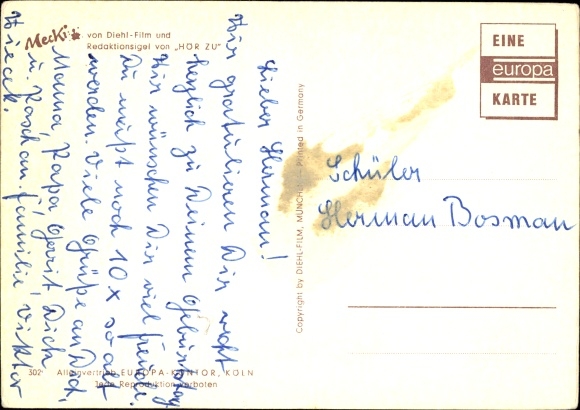 Mecki von Diehl-Film und
Redaktionsigel von „HÖR ZU“
EINE
europa
KARTE
Lieber Herman!
Wir gratulieren Dir recht
herzlich zu Deinem Geburtstag.
Du mußt noch 10x so alt
Wir wünschen Dir viel Freude.
werden. Viele Grüße an Dich,
Mama, Papa, Gerrit Dich
u. Familie, Viktor
Schüler
Herman Bosman
Copyright by DIEHL-FILM, MÜNCHEN Printed in Germany
302 Alleinvertrieb EUROPA-KONTOR, KÖLN
Jede Reproduktion verboten